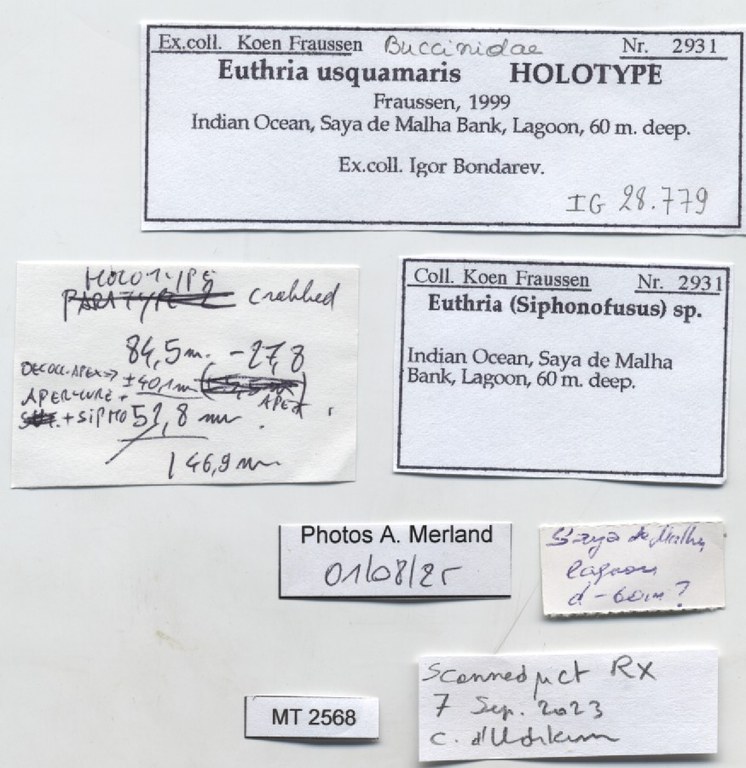 Ex.coll. Koen Fraussen Buccinidae Nr. 2931
Euthria usquamaris HOLOTYPE
Fraussen, 1999
Indian Ocean, Saya de Malha Bank, Lagoon, 60 m. deep.
Ex.coll. Igor Bondarev.
IG 28.779
HOLOTYPE
PARATYPE crabbed
84,5 m. - 27,8
DECOLL. APEX →
± 40,1 m
APEX
APERTURE +
+ SIPHO 51,8 mm
146,9 mm
Coll. Koen Fraussen Nr. 2931
Euthria (Siphonofusus) sp.
Indian Ocean, Saya de Malha
Bank, Lagoon, 60 m. deep.
Photos A. Merland
01/08/25
Saya de Malha
lagoon
d - 60m ?
Scanned µct RX
7 Sep. 2023
C. d'Udekem
MT 2568